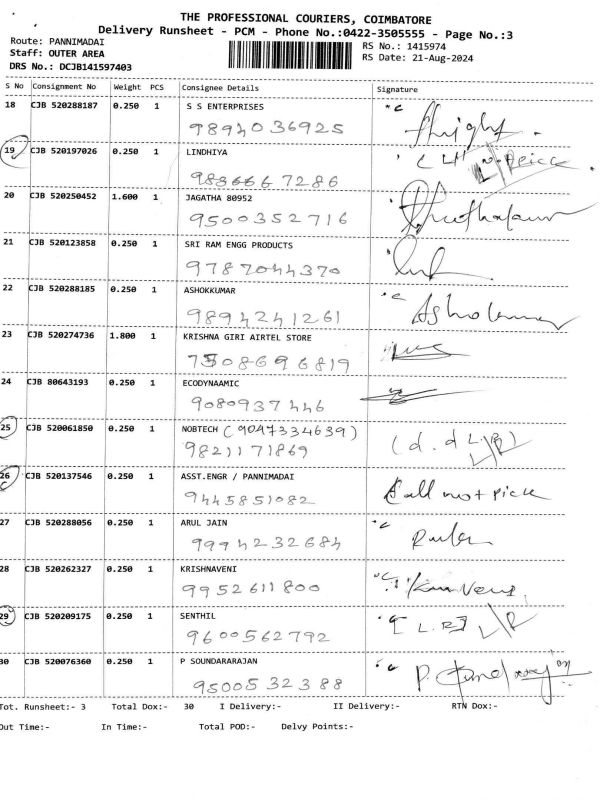 THE PROFESSIONAL COURIERS, COIMBATORE
Delivery Runsheet - PCM - Phone No.:0422-3505555 - Page No.:3
Route: PANNIMADAI RS No.: 1415974
Staff: OUTER AREA RS Date: 21-Aug-2024
DRS No.: DCJB141597403
S No Consignment No Weight PCS Consignee Details Signature
18 CJB 520288187 0.250 1 S S ENTERPRISES
9894036925
19 CJB 520197026 0.250 1 LINDHIYA
9836667286
20 CJB 520250452 1.600 1 JAGATHA 80952
9500352716
21 CJB 520123858 0.250 1 SRI RAM ENGG PRODUCTS
9787044370
22 CJB 520288185 0.250 1 ASHOKKUMAR
9894241261
23 CJB 520274736 1.800 1 KRISHNA GIRI AIRTEL STORE
7508696819
24 CJB 80643193 0.250 1 ECODYNAAMIC
9080937446
25 CJB 520061850 0.250 1 NOBTECH (9047334639)
9821171869
26 CJB 520137546 0.250 1 ASST.ENGR / PANNIMADAI Call not pick
9445851082
27 CJB 520288056 0.250 1 ARUL JAIN
9994232684
28 CJB 520262327 0.250 1 KRISHNAVENI
9952611800
29 CJB 520209175 0.250 1 SENTHIL
9600562792
30 CJB 520076360 0.250 1 P SOUNDARARAJAN
9500532388
Tot. Runsheet:- 3 Total Dox:- 30 I Delivery:- II Delivery:- RTN Dox:-
Out Time:- In Time:- Total POD:- Delvy Points:-